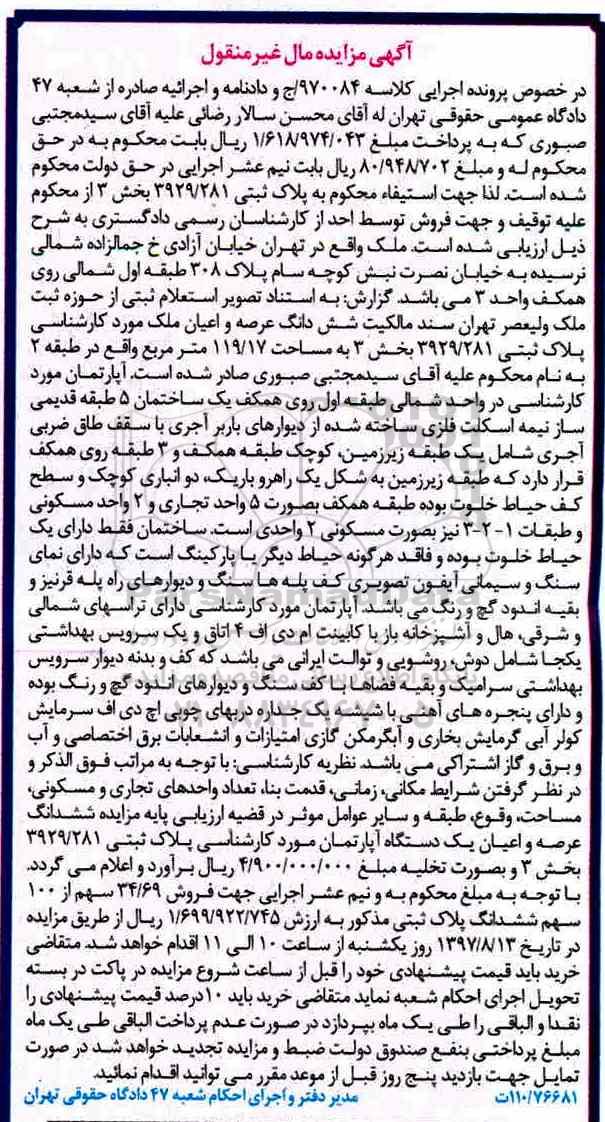 آگهی مزایده مال غیر منقول
در خصوص پرونده اجرایی کلاسه ۹۷۰۰۸۴/ج و دادنامه و اجرائیه صادره از شعبه ۴۷
دادگاه عمومی حقوقی تهران له آقای محسن سالار رضائی علیه آقای سیدمجتبی
صبوری که به پرداخت مبلغ ۱/۶۱۸/۹۷۴/۰۴۳ ریال بابت محکوم به در حق
محکوم له و مبلغ ۸۰/۹۴۸/۷۰۲ ریال بابت نیم عشر اجرایی در حق دولت محکوم
شده است. لذا جهت استیفاء محکوم به پلاک ثبتی ۳۹۲۹/۲۸۱ بخش ۳ از محکوم
علیه توقیف و جهت فروش توسط احد از کارشناسان رسمی دادگستری به شرح
ذیل ارزیابی شده است. ملک واقع در تهران خیابان آزادی خ جمالزاده شمالی
نرسیده به خیابان نصرت نبش کوچه سام پلاک ۳۰۸ طبقه اول شمالی روی
همکف واحد ۳ می باشد. گزارش: به استناد تصویر استعلام ثبتی از حوزه ثبت
ملک ولیعصر تهران سند مالکیت شش دانگ عرصه و اعیان ملک مورد کارشناسی
پلاک ثبتی ۳۹۲۹/۲۸۱ بخش ۳ به مساحت ۱۱۹/۱۷ متر مربع واقع در طبقه ۲
به نام محکوم علیه آقای سیدمجتبی صبوری صادر شده است. آپارتمان مورد
کارشناسی در واحد شمالی طبقه اول روی همکف یک ساختمان ۵ طبقه قدیمی
ساز نیمه اسکلت فلزی ساخته شده از دیوارهای باربر آجری با سقف طاق ضربی
آجری شامل یک طبقه زیرزمین، کوچک طبقه همکف و ۳ طبقه روی همکف
قرار دارد که طبقه زیرزمین به شکل یک راهرو باریک، دو انباری کوچک و سطح
کف حیاط خلوت بوده طبقه همکف بصورت ۵ واحد تجاری و ۲ واحد مسکونی
و طبقات ۱-۲-۳ نیز بصورت مسکونی ۲ واحدی است. ساختمان فقط دارای یک
حیاط خلوت بوده و فاقد هرگونه حیاط دیگر یا پارکینگ است که دارای نمای
سنگ و سیمانی آیفون تصویری کف پله ها سنگ و دیوارهای راه پله قرنیز و
بقیه اندود گچ و رنگ می باشد. آپارتمان مورد کارشناسی دارای تراسهای شمالی
و شرقی، هال و آشپزخانه باز با کابینت ام دی اف ۴ اتاق و یک سرویس بهداشتی
یکجا شامل دوش، روشویی و توالت ایرانی می باشد که کف و بدنه دیوار سرویس
بهداشتی سرامیک و بقیه فضاها با کف سنگ و دیوارهای اندود گچ و رنگ بوده
و دارای پنجره های آهنی با شیشه یک جداره دربهای چوبی اچ دی اف سرمایش
کولر آبی گرمایش بخاری و آبگرمکن گازی امتیازات و انشعابات برق اختصاصی و آب
و برق و گاز اشتراکی می باشد. نظریه کارشناسی: با توجه به مراتب فوق الذکر و
در نظر گرفتن شرایط مکانی، زمانی، قدمت بنا، تعداد واحدهای تجاری و مسکونی،
مساحت، وقوع، طبقه و سایر عوامل موثر در قضیه ارزیابی پایه مزایده ششدانگ
عرصه و اعیان یک دستگاه آپارتمان مورد کارشناسی پلاک ثبتی ۳۹۲۹/۲۸۱
بخش ۳ و بصورت تخلیه مبلغ ۴/۹۰۰/۰۰۰/۰۰۰ ریال برآورد و اعلام می گردد.
با توجه به مبلغ محکوم به و نیم عشر اجرایی جهت فروش ۳۴/۶۹ سهم از ۱۰۰
سهم ششدانگ پلاک ثبتی مذکور به ارزش ۱/۶۹۹/۹۲۲/۷۴۵ ریال از طریق مزایده
در تاریخ ۱۳۹۷/۸/۱۳ روز یکشنبه از ساعت ۱۰ الی ۱۱ اقدام خواهد شد. متقاضی
خرید باید قیمت پیشنهادی خود را قبل از ساعت شروع مزایده در پاکت در بسته
تحویل اجرای احکام شعبه نماید متقاضی خرید باید ۱۰ درصد قیمت پیشنهادی را
نقدا و الباقی را طی یک ماه بپردازد در صورت عدم پرداخت الباقی طی یک ماه
مبلغ پرداختی بنفع صندوق دولت ضبط و مزایده تجدید خواهد شد در صورت
تمایل جهت بازدید پنج روز قبل از موعد مقرر می توانید اقدام نمائید.
۱۱۰/۷۶۶۸۱ت مدیر دفتر و اجرای احکام شعبه ۴۷ دادگاه حقوقی تهران
ParsNamadData